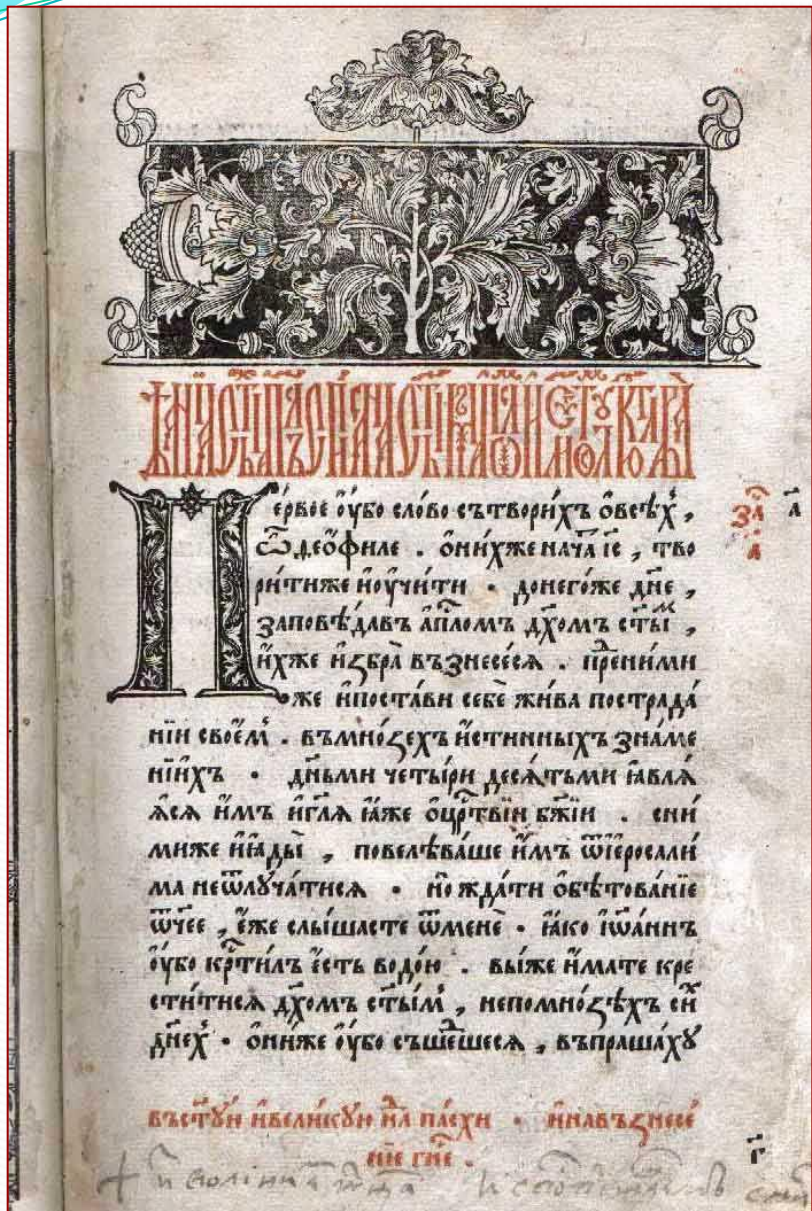 Пе́рвое ᲂу҆́бо сло́во сътвори́хъ ѻ҆всѣ́хъ ,
ѽ д̾ео́філе . ѻ҆ни́хже нача́ і҃с , тво
ри́тиже и҆ᲂу҆чи́ти . донего́же дн҃е ,
заповѣ́давъ а҆п҃ломъ дх҃омъ ст҃ы́м ,
и҆́хже и҆збра̀ възнесе́ся . пре́дними
же и҆поста́ви себѐ жи́ва пострада́
нїи свое́мъ . въмно́ѕехъ и҆́стинныхъ зна́ме
нїихъ . дн҃ьми четы́ри десѧ́тьми ꙗ҆влѧ́
ѧ҆сѧ и҆̀мъ и҆гл҃ѧ ꙗ҆́же ѻ҆цр҃твїи бж҃їи . сни́
миже и҆ꙗ҆ды̀ , повелѣва́ше и҆̀мъ ѿі҆ероса́ли
ма неѿлꙋча́тисѧ . но жда́ти ѻ҆бѣтова́нїе
ѿч҃ее , е҆́же слы́шасте ѿменѐ . ꙗ҆́ко і҆ѡа́ннъ
ᲂу҆́бо кр҃ти́лъ е҆́сть водо́ю . вы́же и҆́мате кре
сти́тисѧ дх҃омъ ст҃ы́мъ , непомно́ѕѣхъ си́х
дн҃ехъ . ѻ҆ни́же ᲂу҆́бо съше́дшесѧ , въпраша́хꙋ
за҃ а҃
а҃
въст҃ꙋю и҆вели́кꙋю нл҃ѧ па́схи . и҆навъзнесе́
нїе гн҃е .
г҃